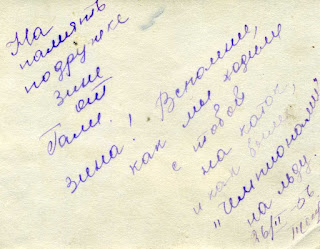 На
память
подружке
Зине
от
Гали.
Зина! Вспомни,
как мы ходили
с тобой
на каток,
и как были
"Чемпионами"
на льду.
26/II - 06